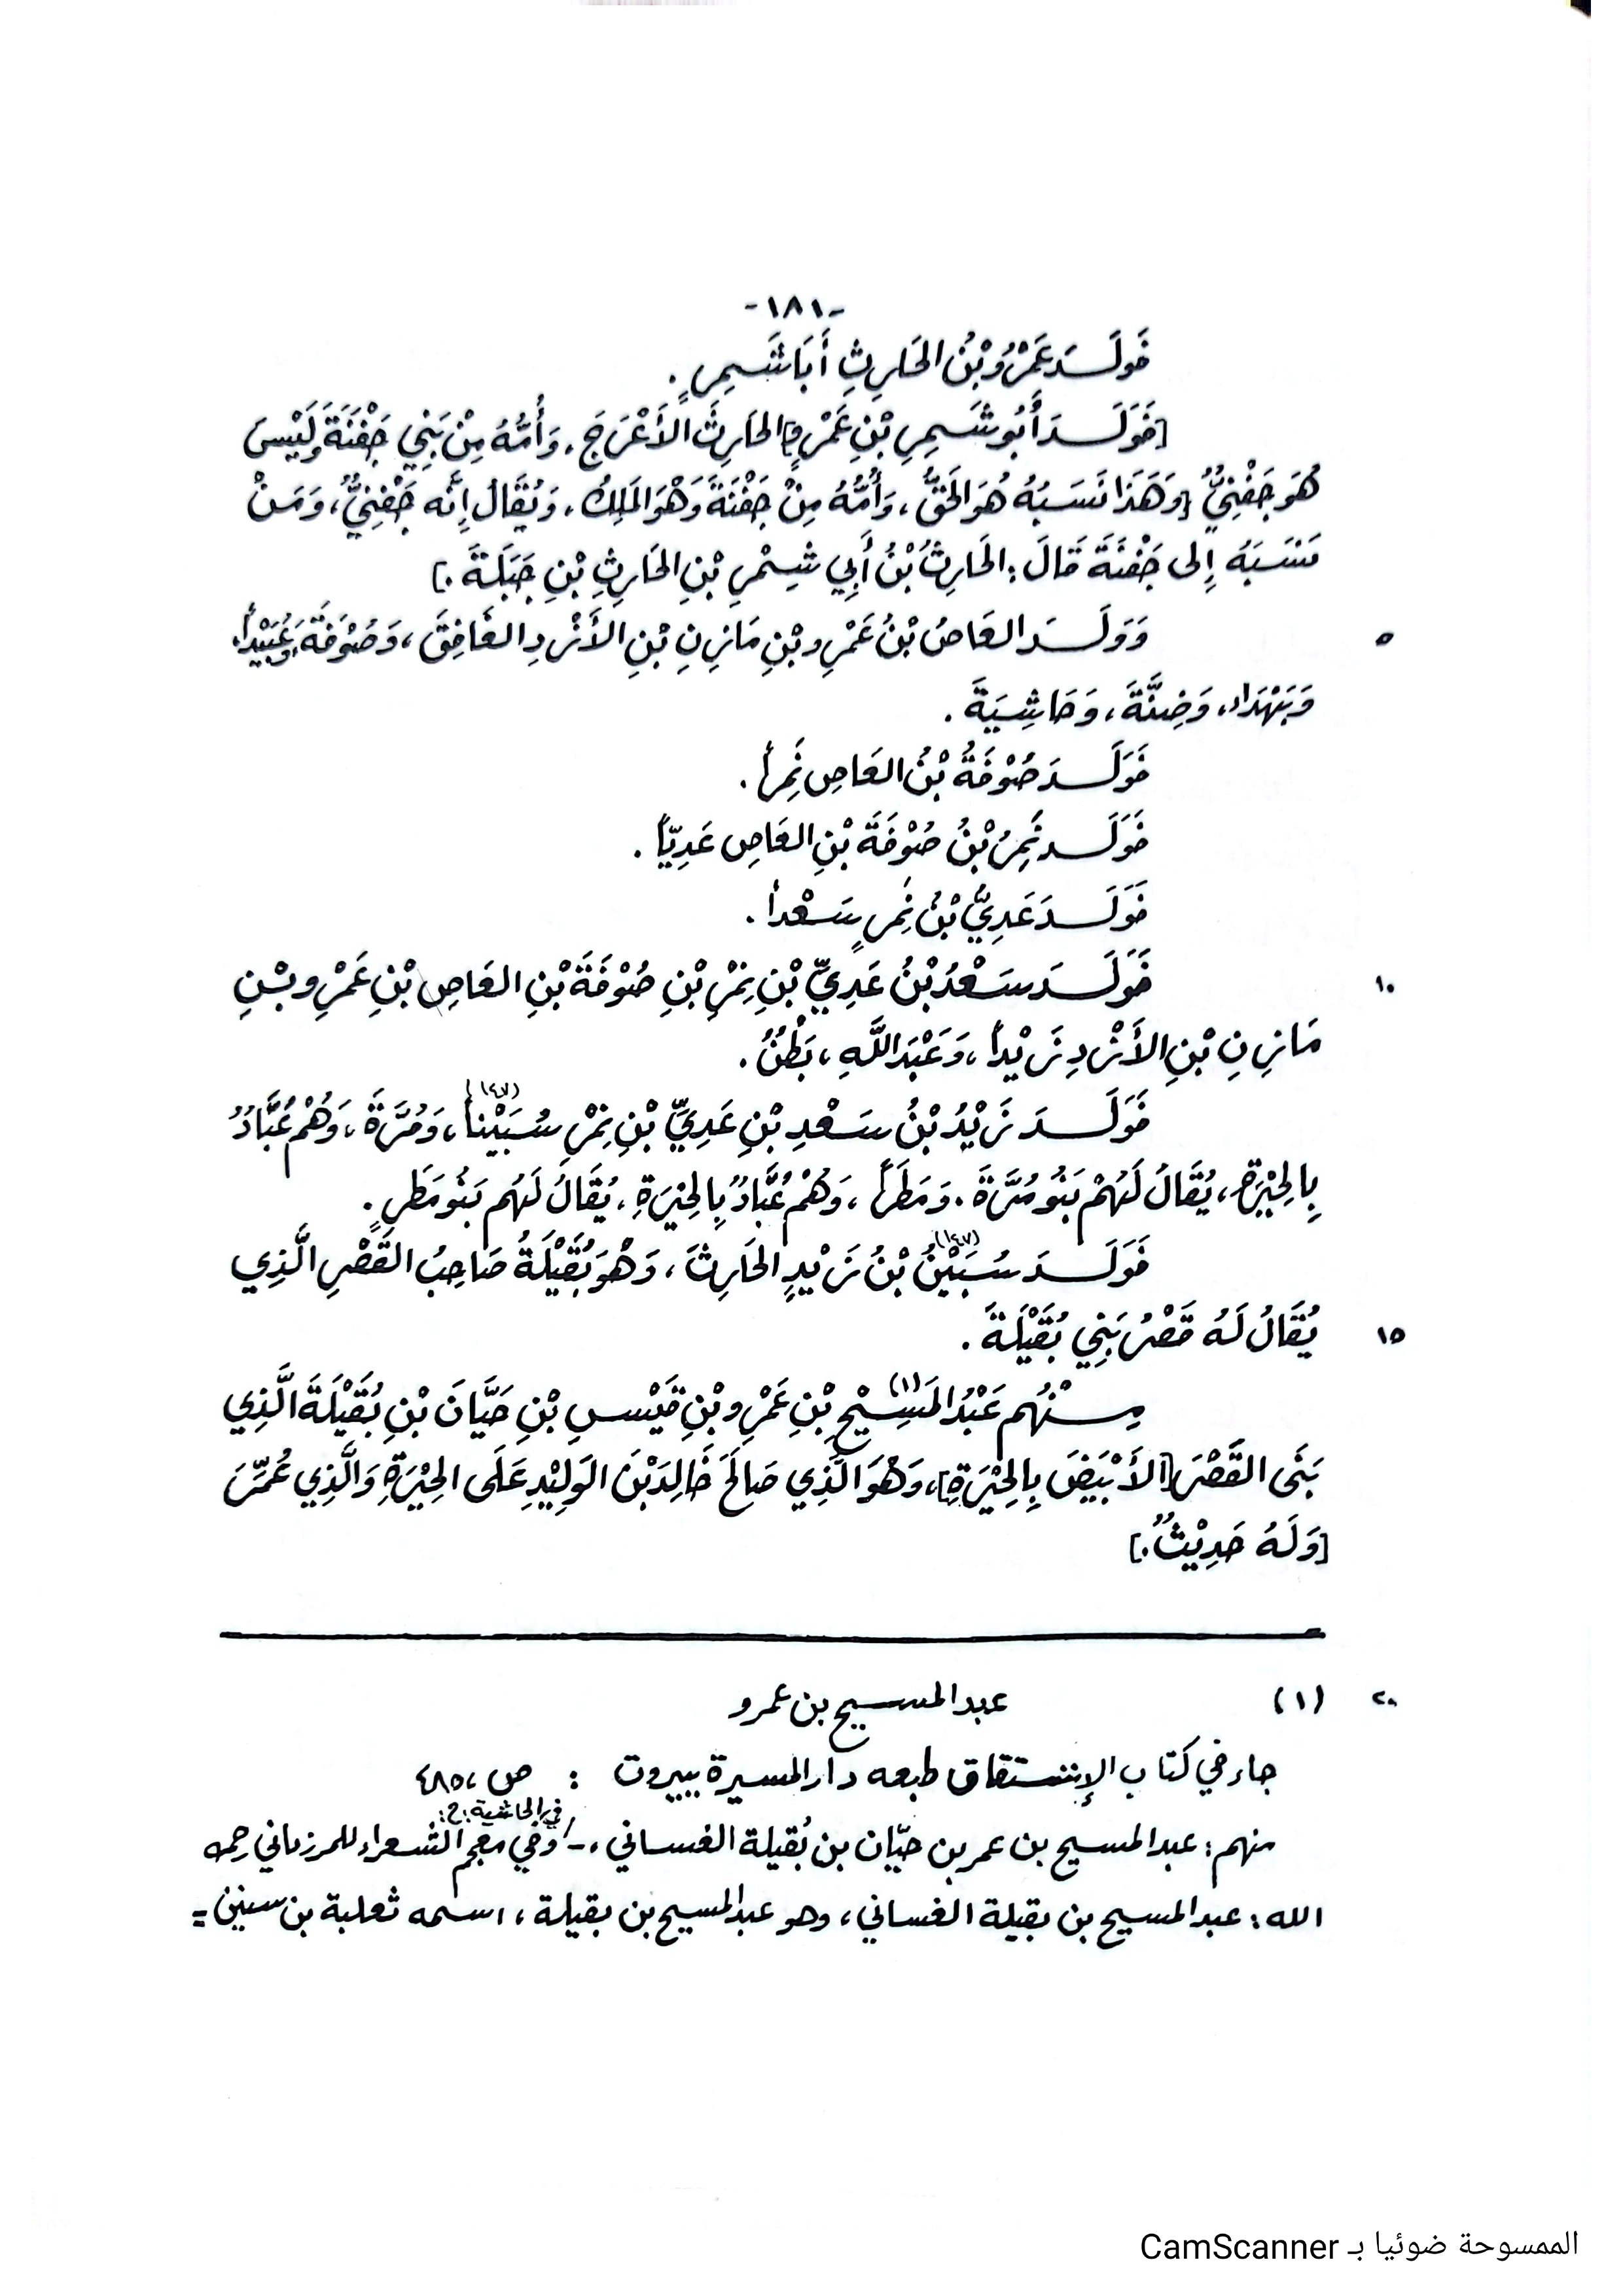 -١٨١-
فَوَلَدَ عَمْرُو بْنُ الحَارِثِ أَبَا شَمِرٍ.
[فَوَلَدَ أَبُو شَمِرِ بْنِ عَمْرٍو] الحَارِثَ الأَعْرَجَ. وَأُمُّهُ مِنْ بَنِي جَفْنَةَ وَلَيْسَ
هُوَ جَفْنِيٌّ [وَهَذَا نَسَبُهُ هُوَ الحَقُّ، وَأُمُّهُ مِنْ جَفْنَةَ وَهْوَ المَلِكُ. وَيُقَالُ إِنَّه جَفْنِيٌّ، وَمَنْ
نَسَبَهُ إِلى جَفْنَةَ قَالَ: الحَارِثُ بْنُ أَبِي شِمْرِ بْنِ الحَارِثِ بْنِ جَبَلَةَ.]
٥ وَوَلَدَ العَاصُ بْنُ عَمْرِو بْنِ مَازِنِ بْنِ الأَزْدِ الغَافِقَ، وَصُوْفَةَ، وَعُبَيْداً،
وَبَهْدَاء، وَضِنَّةَ، وَحَاشِيَةَ.
فَوَلَدَ صُوْفَةُ بْنُ العَاصِ نَمِراً.
فَوَلَدَ نَمِرُ بْنُ صُوْفَةَ بْنِ العَاصِ عَدِيّاً.
فَوَلَدَ عَدِيُّ بْنُ نَمِرٍ سَعْداً.
١٠ فَوَلَدَ سَعْدُ بْنُ عَدِيِّ بْنِ نِمْرِ بْنِ صُوْفَةَ بْنِ العَاصِ بْنِ عَمْرِو بْنِ
مَازِنِ بْنِ الأَزْدِ زَيْداً، وَعَبْدَ اللَّهِ، بَطْنٌ.
فَوَلَدَ زَيْدُ بْنُ سَعْدِ بْنِ عَدِيِّ بْنِ نِمْرٍ سُبَيْناً(١٤٧)، وَمُرَّةَ، وَهُمْ عُبَّادٌ
بِالحِيْرَةِ، يُقَالُ لَهُمْ بَنُو مُرَّةَ. وَمَطَراً، وَهُمْ عُبَّادٌ بِالحِيْرَةِ، يُقَالُ لَهُم بَنُو مَطَرٍ.
فَوَلَدَ سُبَيْنُ(١٤٧) بْنُ زَيْدٍ الحَارِثَ، وَهْوَ بُقَيْلَةُ صَاحِبُ القَصْرِ الَّذِي
١٥ يُقَالُ لَهُ قَصْرُ بَنِي بُقَيْلَةَ.
مِنْهُم عَبْدُ المَسِيْحِ(١) بْنِ عَمْرِو بْنِ قَيْسِ بْنِ حَيَّانَ بْنِ بُقَيْلَةَ الَّذِي
بَنَى القَصْرَ [الأَبْيَضَ بِالحِيْرَةِ]، وَهْوَ الَّذِي صَالَحَ خَالِدَ بْنَ الوَلِيْدِ عَلَى الحِيْرَةِ وَالَّذِي عُمِّرَ
[وَلَهُ حَدِيْثٌ.]
٢٠ (١) عبد المسيح بن عمرو
جاء في كتاب الإشتقاق طبعه دار المسيرة ببيروت : ص، ٤٨٥
منهم: عبد المسيح بن عمر بن حيّان بن بُقيلة الغساني، - في الحاشية: ٢: وفي معجم الشعراء للمرزباني رحمه
الله: عبد المسيح بن بقيلة الغساني، وهو عبد المسيح بن بقيلة، اسمه ثعلبة بن سنين =
الممسوحة ضوئيا بـ CamScanner